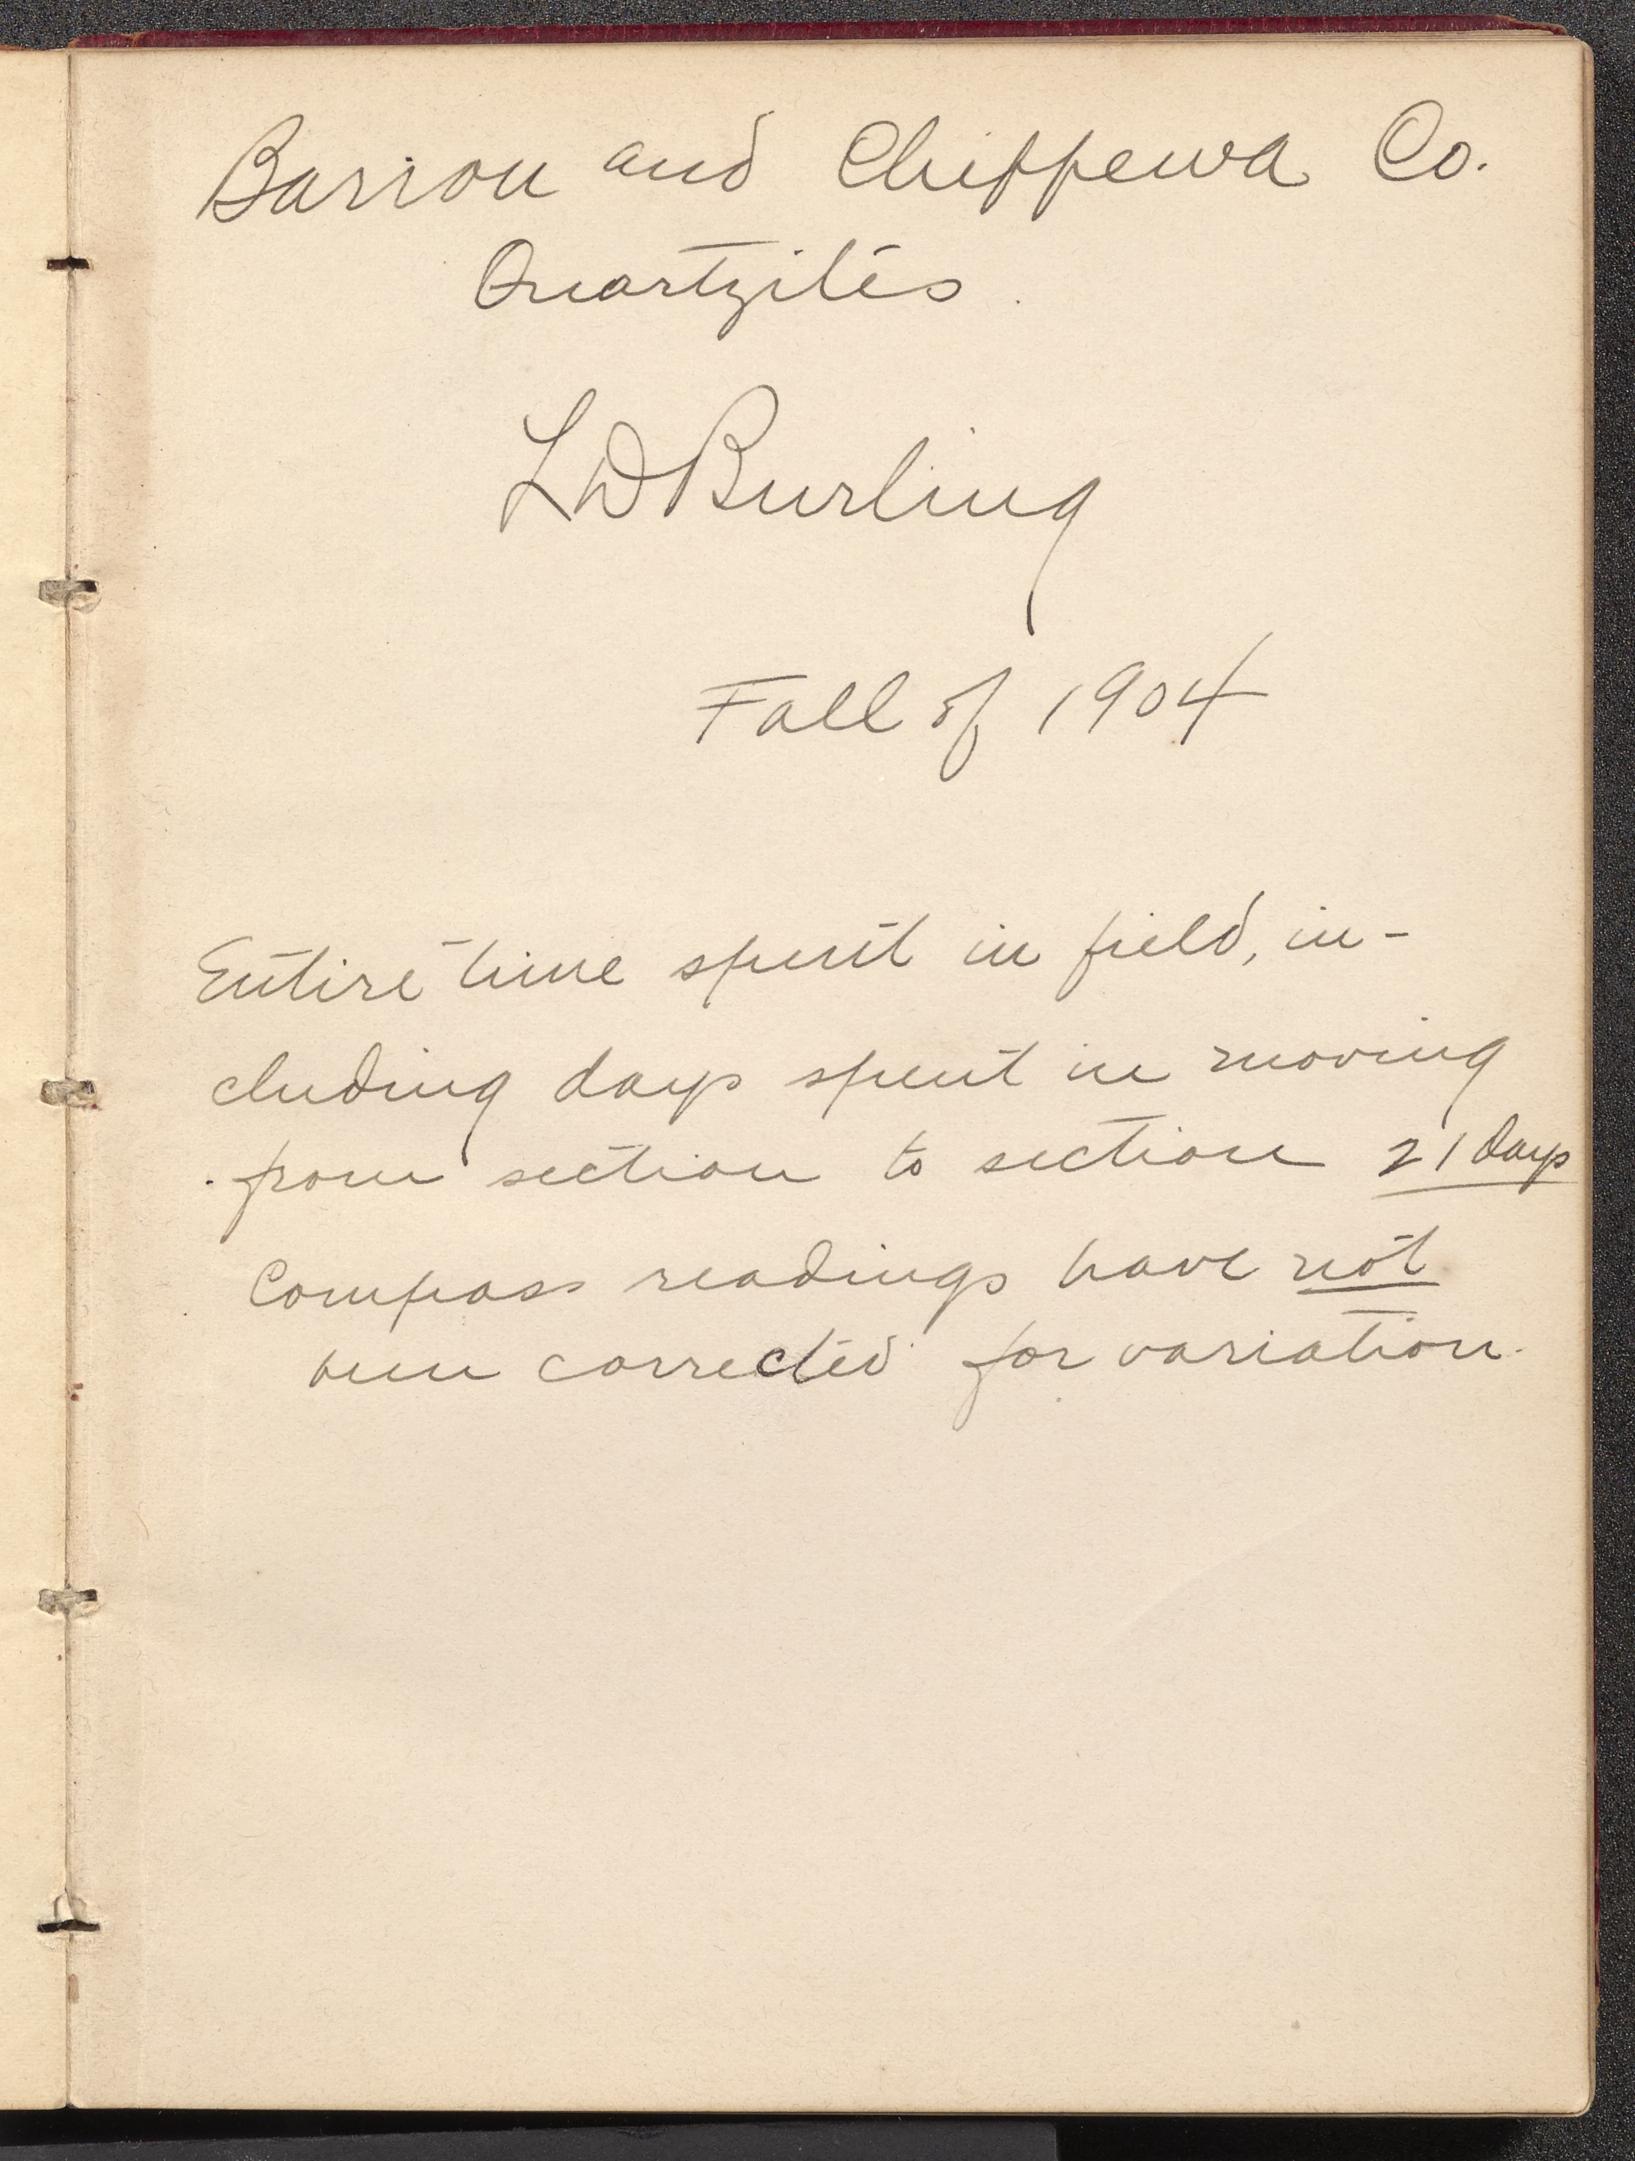 Barron and Chippewa Co.
Quartzites.
L D Burling
Fall of 1904
Entire time spent in field, in-
cluding days spent in moving
from section to section 21 days
Compass readings have not
been corrected for variation.